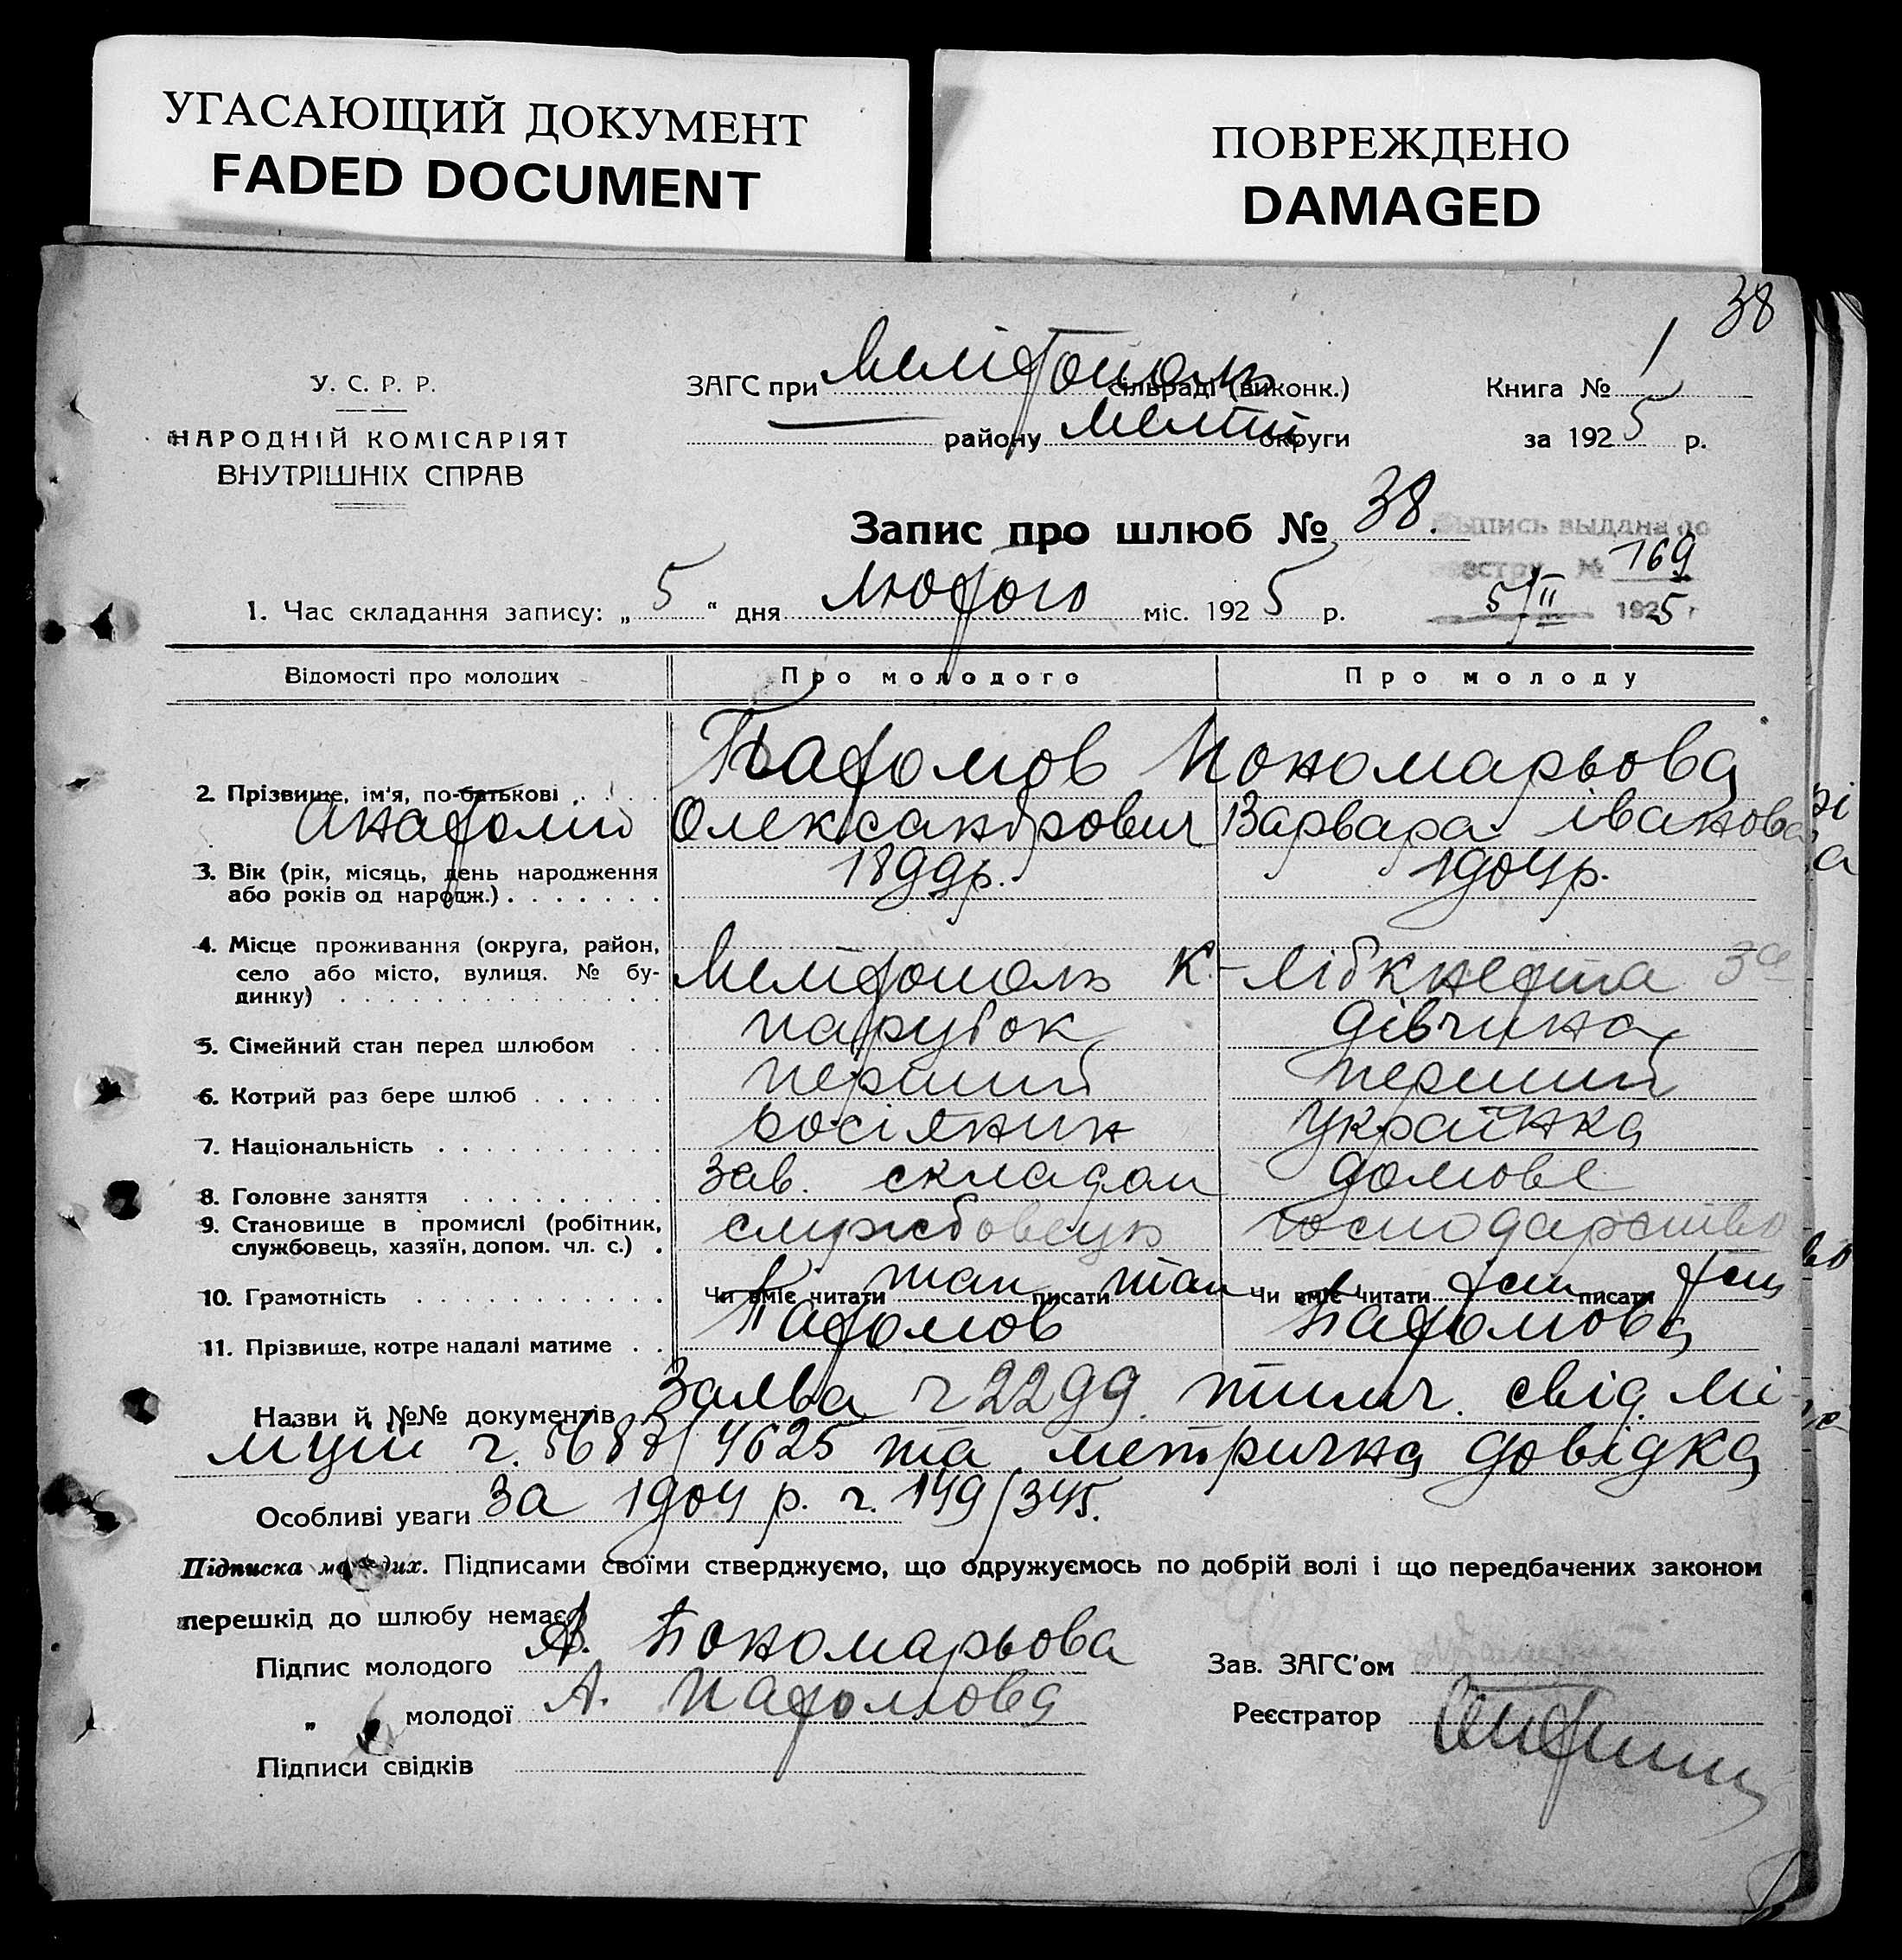 УГАСАЮЩИЙ ДОКУМЕНТ
FADED DOCUMENT
ПОВРЕЖДЕНО
DAMAGED
38
У. С. Р. Р.
НАРОДНІЙ КОМІСАРІЯТ
ВНУТРІШНІХ СПРАВ
ЗАГС при Мелітополь сільраді (виконк.)
району Меліт округи
Книга № 1
за 1925 р.
Запис про шлюб № 38.
Выпись выдана по
реестру № 169
5/II 1925 г
1. Час складання запису: „5“ дня Лютого міс. 1925 р.
Відомості про молодих Про молодого Про молоду
Пономарьова
2. Прізвище, ім'я, по-батькові
Анатолій Олександрович Варвара Іванова
3. Вік (рік, місяць, день народження 1899р. 1904р.
або років од народж.)
4. Місце проживання (округа, район,
село або місто, вулиця. № бу- Мелітополь К.-Лібкнехта
динку)
5. Сімейний стан перед шлюбом парубок дівчина
6. Котрий раз бере шлюб перший перший
7. Національність росіянин українка
8. Головне заняття зав. складом домове
9. Становище в промислі (робітник, службовець господарство
службовець, хазяїн, допом. чл. с.)
10. Грамотність Чи вміє читати так писати так Чи вміє читати так писати так
11. Прізвище, котре надалі матиме
Назви й №№ документів Заява ч 2299. тимч. свід. мі-
ліції ч. 5687/4625 та метрична довідка
Особливі уваги за 1904 р. ч. 149/345.
Підписка молодих. Підписами своїми стверджуємо, що одружуємось по добрій волі і що передбачених законом
перешкід до шлюбу немає.
Підпис молодого Пономарьова
Зав. ЗАГС'ом
„ молодої А.
Реєстратор
Підписи свідків